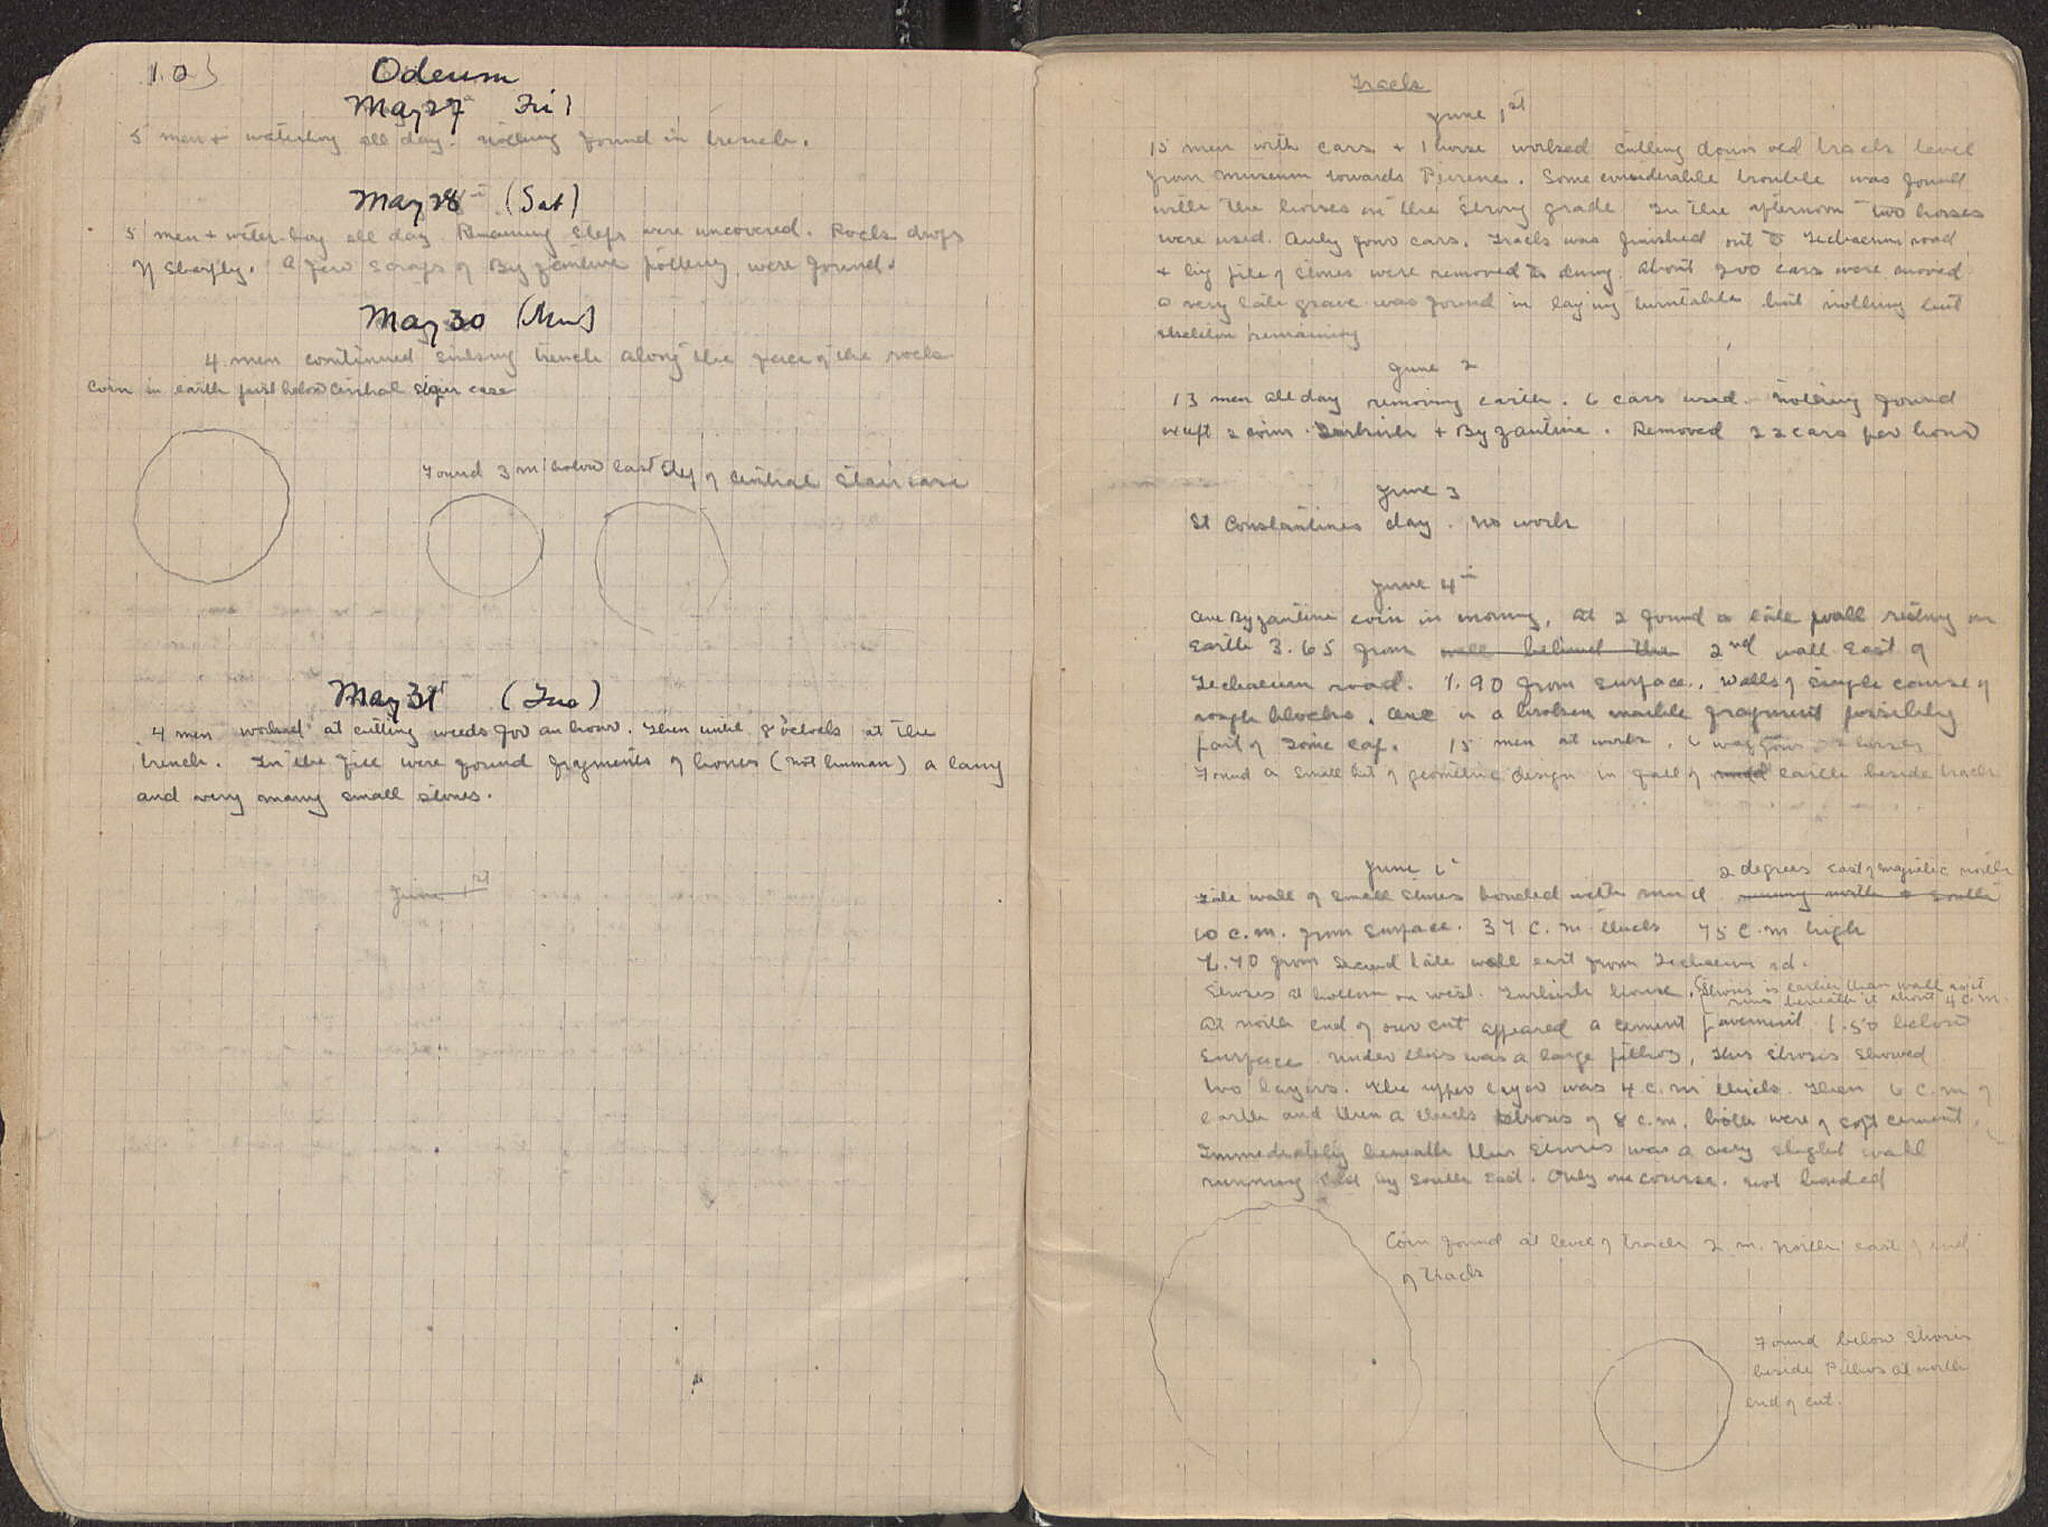 Odeum
May 27 Fri
5 men + waterboy all day. nothing found in trench.
May 28 (Sat)
5 men + water-boy all day. Remaining steps were uncovered. Rock drops
off sharply. A few scraps of Byzantine pottery were found.
May 30 (Mon)
4 men continued sinking trench along the face of the rock
Coin in earth just below central stair case
Found 3 m below last step of central staircase
May 31st (Tue)
4 men worked at cutting weeds for an hour. Then until 8 o'clock at the
trench. In the fill were found fragments of bones (not human) a lamp
and very many small stones.
June 1st
Track
June 1st
15 men with cars + 1 horse worked cutting down old track level
from museum towards Peirene. Some considerable trouble was found
with the horses on the strong grade. In the afternoon two horses
were used. Only four cars. Track was finished out to Lechaeum road
+ big pile of stones were removed to dump. About 200 cars were moved
a very late grave was found in laying turntable but nothing but
skeleton remaining
June 2
13 men all day removing earth. 6 cars used. Nothing found
except 2 coins. Turkish + Byzantine. Removed 22 cars per hour
June 3
St Constantines day. No work
June 4
One Byzantine coin in morning, at 2 found a late wall resting on
earth 3.65 from wall behind the 2nd wall east of
Lechaeum road. 1.90 from surface. Walls of single course of
rough blocks. One is a broken marble fragment possibly
part of some cap. 15 men at work. 6 waggons 2 horses
Found a small bit of geometric design in fall of earth beside track
June 6
2 degrees east of magnetic north
Late wall of small stones bonded with mud running north + south
60 c.m. from surface. 37 c.m. thick 75 c.m. high
7.70 from second late wall east from Lechaeum rd.
Stroses at bottom on west. Turkish house. (Strosis is earlier than wall as it
runs beneath it about 4 c.m.
At north end of our cut appeared a cement pavement 1.50 below
surface. Under this was a large pithos, this strosis showed
two layers. The upper layer was 4 c.m. thick. Then 6 c.m. of
earth and then a thick strosis of 8 c.m. both were of soft cement.
Immediately beneath this strosis was a very slight wall
running East by South East. Only one course. not bonded
Coin found at level of track 2 m. north east of end
of track
Found below strosis
beside Pithos at north
end of cut.